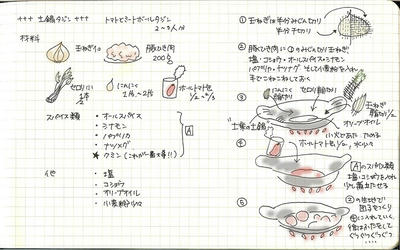 +++ 土鍋タジン +++ トマトミートボールタジン
2〜3人分
材料
玉ねぎ1コ
豚ひき肉
200g
セロリ
1本
にんにく
1片〜2片
ホールトマト缶
1/2
スパイス類
• オールスパイス
• シナモン
• パプリカ
• ナツメグ
★ クミン (これが一番大事!!)
A
他
• 塩
• コショウ
• オリーブオイル
• 小麦粉少々
① 玉ねぎは半分みじん切り
半分輪切り
② 豚ひき肉に①のみじん切り玉ねぎ、
塩・コショウ・オールスパイス・シナモン
パプリカ・ナツメグ そして小麦粉を入れ
手でこねこねしておく
③
にんにく
輪切り
セロリ輪切り
玉ねぎ
輪切り1/2コ
オリーブオイル
土鍋
④
ホールトマト缶1/2、水
Aのスパイス類
塩・コショウを入れ
少し煮立たせる
⑤
②の生地で
団子をつくり
④に入れていく
ぐつぐつぐつぐつ